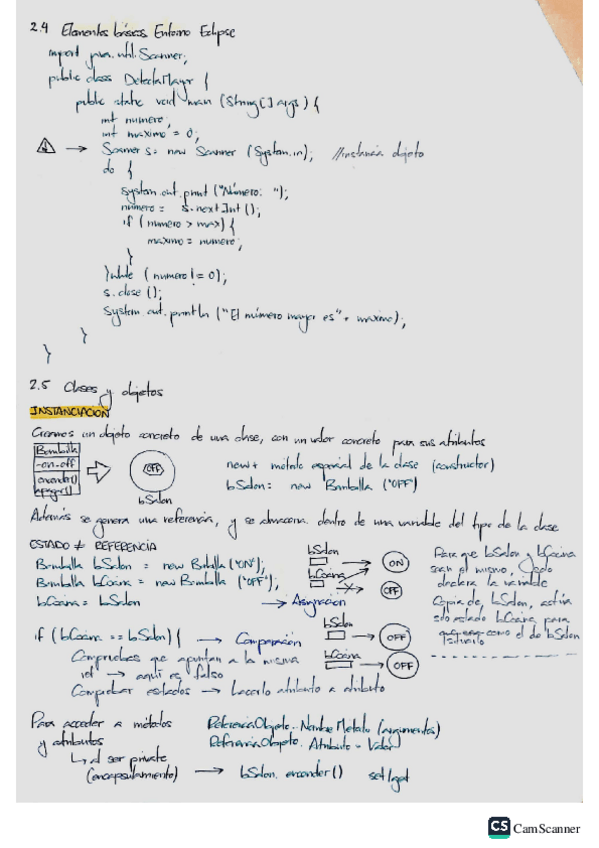 2.4 Elementos básicos Entorno Eclipse
import java.util.Scanner;
public class DetectaMayor {
public static void main (String[] args) {
int numero;
int maximo = 0;
⚠ → Scanner s = new Scanner (System.in); //instancia objeto
do {
System.out.print ("Número: ");
número = s.nextInt();
if (numero > max) {
maximo = numero;
}
}while (numero != 0);
s.close ();
System.out.println ("El número mayor es" + maximo);
}
}
2.5 Clases y objetos
INSTANCIACIÓN
Creamos un objeto concreto de una clase, con un valor concreto para sus atributos
Bombilla
-on-off
encender()
apagar()
OFF
bSalon
new + método especial de la clase (constructor)
bSalon: new Bombilla ("OFF")
Además se genera una referencia, y se almacena dentro de una variable del tipo de la clase
ESTADO ≠ REFERENCIA
Bombilla bSalon = new Bobilla ("ON");
Bombilla bCocina = new Bombilla ("OFF");
bCocina = bSalon → Asignación
bSalon
bCocina
ON
OFF
Para que bSalon y bCocina
sean el mismo,
la variable
bSalon
bCocina para
como el de bSalon
if (bCocina == bSalon) { → Comparación
Compruebas que apuntan a la misma
ref → aquí es falso
Comprobar estados → hacerlo atributo a atributo
bSalon
OFF
bCocina
OFF
Para acceder a métodos
y atributos
↳ al ser private
(encapsulamiento) → bSalon.encender() set/get
ReferenciaObjeto.NombreMetodo (argumentos)
ReferenciaObjeto.Atributo = Valor
CS CamScanner